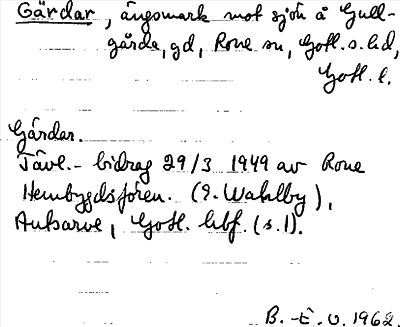 Gärdar, ängsmark mot sjön å Gull-
gårde, gd, Rone sn, Gotl. s. hd,
Gotl. l.
Gärdar.
Tävl.- bidrag 29/3 1949 av Rone
Hembygdsfören. (E. Wahlby),
Auksarve, Gotl. hbf. (s. 1).
B.-E. O. 1962.